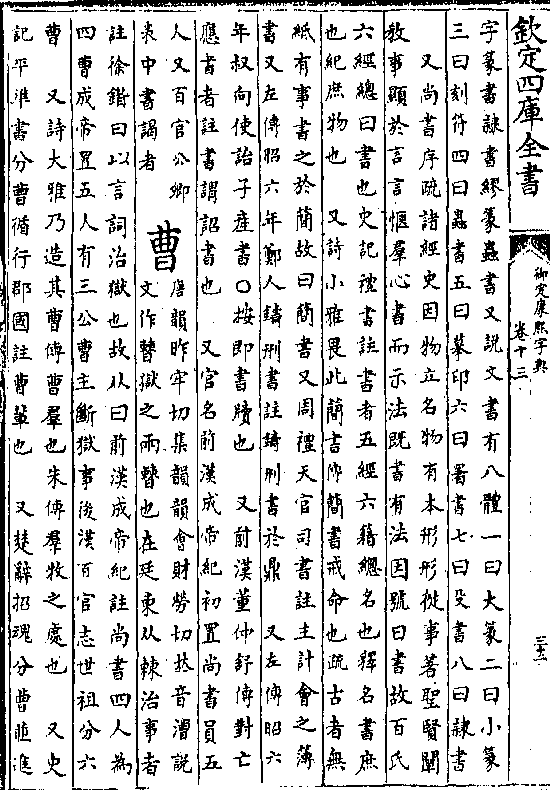 欽定四庫全書
御定康熙字典
卷十三
三十一
字篆書隷書繆篆蟲書又說文書有八體一曰大篆二曰小篆
三曰刻符四曰蟲書五曰摹印六曰署書七曰殳書八曰隷書
又尚書序疏諸經史因物立名物有本形形從事著聖賢闡
敎事顯於言言愜羣心書而示法旣書有法因號曰書故百氏
六經總曰書也史記禮書註書者五經六籍總名也釋名書庶
也紀庶物也　又詩小雅畏此簡書傳簡書戒命也疏古者無
紙有事書之於簡故曰簡書又周禮天官司書註主計會之簿
書又左傳昭六年鄭人鑄刑書註鑄刑書於鼎　又左傳昭六
年叔向使詒子產書○按卽書牘也　又前漢董仲舒傳對亡
應書者註書謂詔書也　又官名前漢成帝紀初置尚書員五
人又百官公卿
表中書謁者
曹
唐韻昨牢切集韻韻會財勞切𠀤音漕說
文作𣍘獄之兩𣍘也在廷東从㯥治事者
註徐鍇曰以言詞治獄也故从曰前漢成帝紀註尚書四人爲
四曹成帝置五人有三公曹主斷獄事後漢百官志世祖分六
曹　又詩大雅乃造其曹傳曹羣也朱傳羣牧之處也　又史
記平準書分曹循行郡國註曹輩也　又楚辭招魂分曹𠀤進